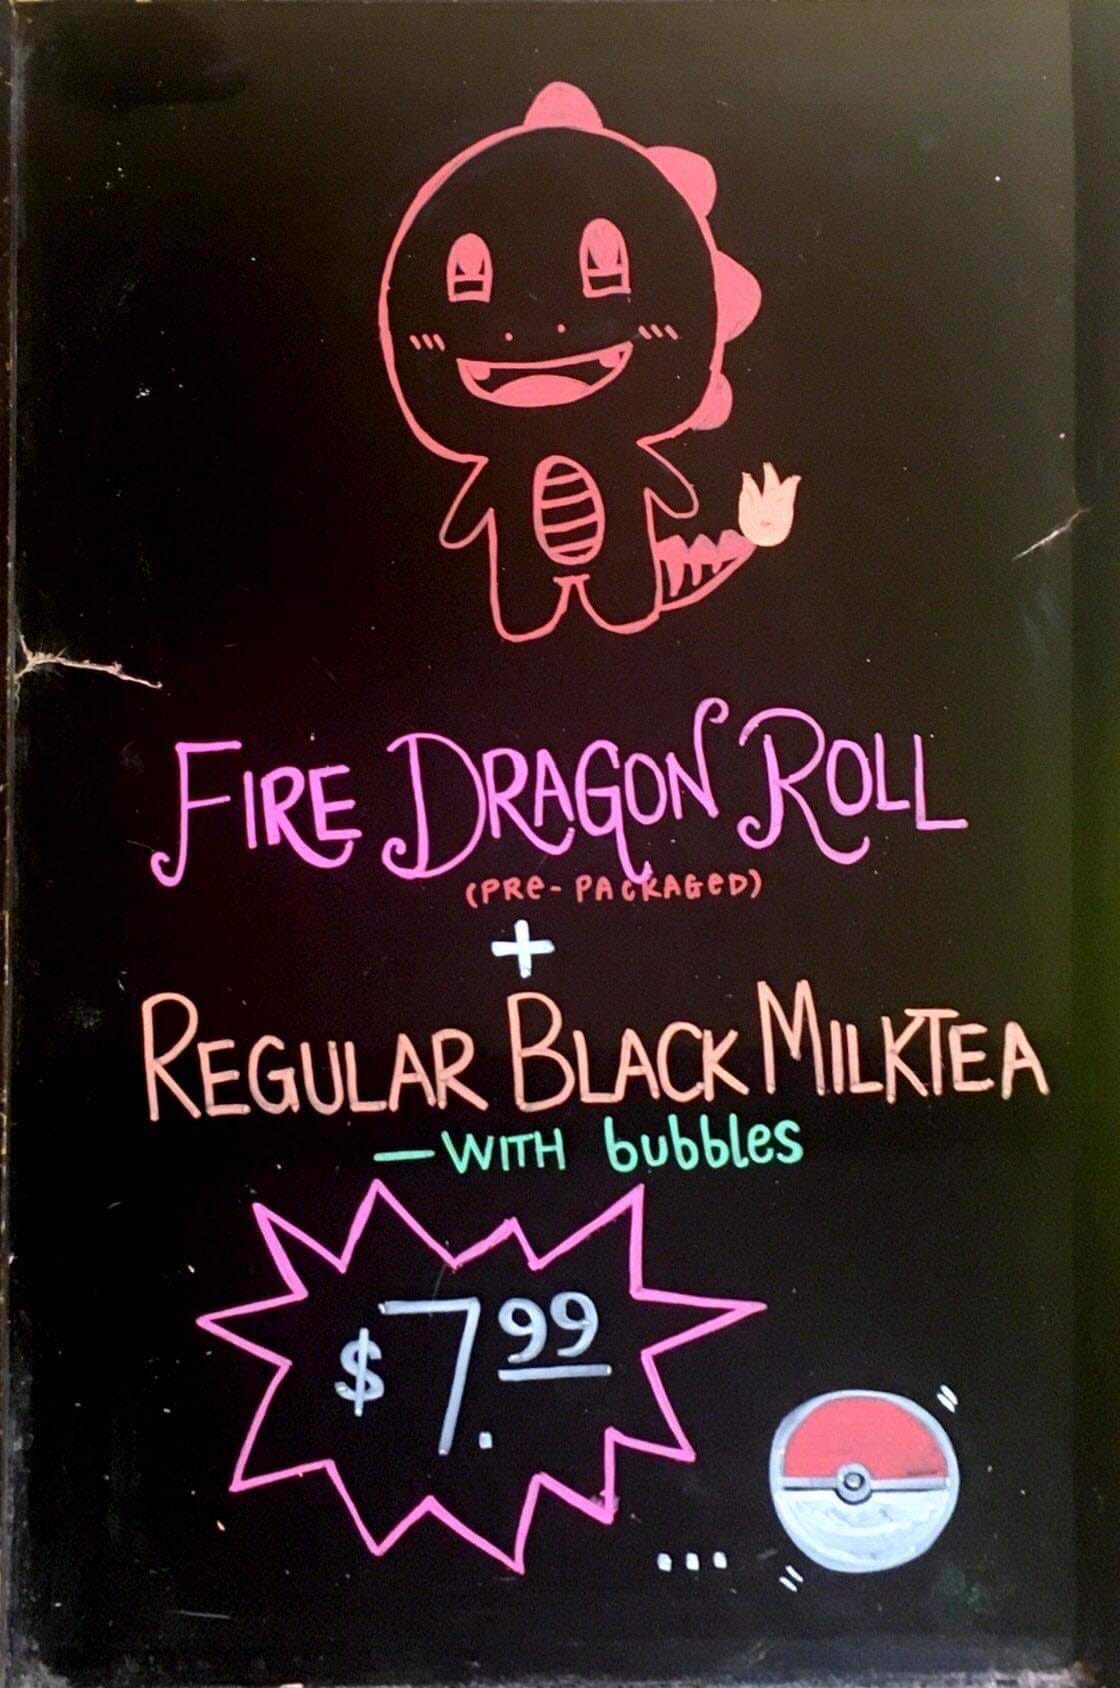 FIRE DRAGON ROLL
(PRE-PACKAGED)
+
REGULAR BLACK MILKTEA
—WITH bubbles
$7.99
...